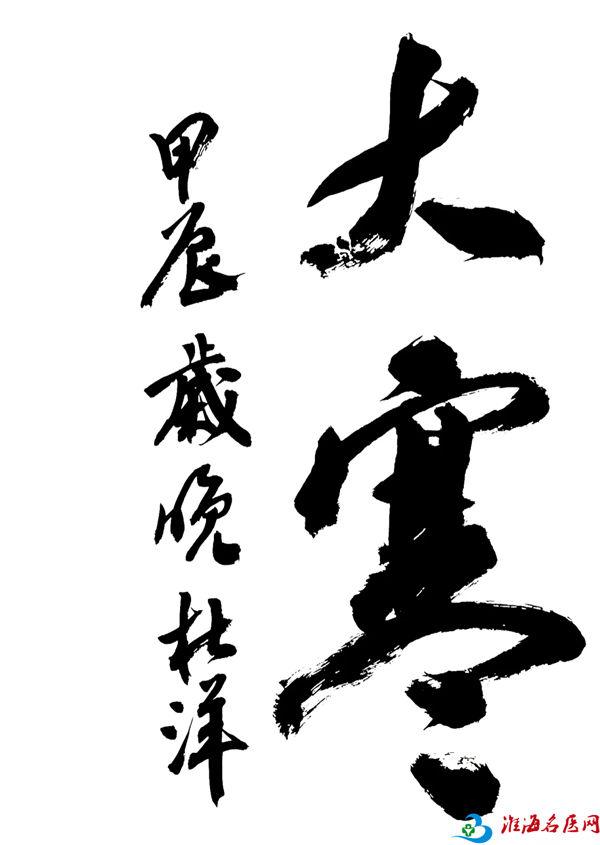 大寒
甲辰歲晚杜洋
淮海名医网